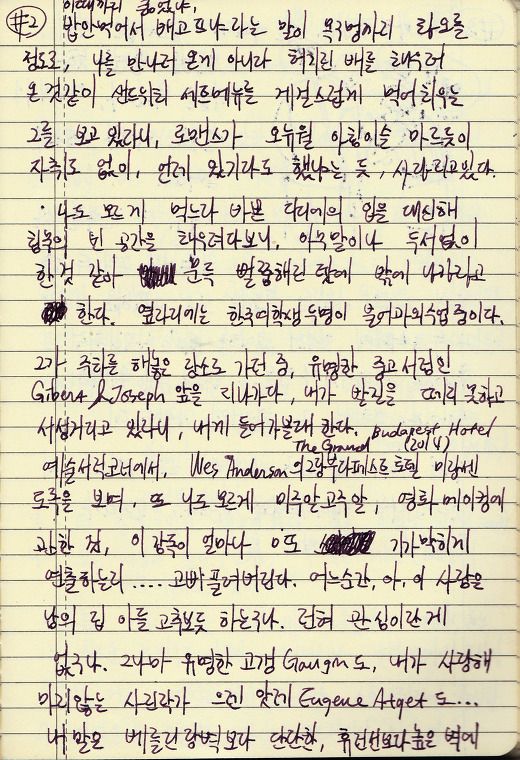 #2
이때까지 굶었냐,
밥안먹어서 배고프냐라는 말이 목구멍까지 타오를
정도로, 나를 만나러 온게 아니라 허기진 배를 채우러
온것같이 샌드위치 세트메뉴를 게걸스럽게 먹어치우는
그를 보고 있자니, 로맨스가 오뉴월 아침이슬 마르듯이
자취도 없이, 언제 있기라도 했냐는 듯, 사라지고있다.
· 나도 모르게 먹느라 바쁜 디디에의 입을 대신해
침묵의 빈 공간을 채우려다보니, 아무말이나 두서없이
한것 같아 문득 뻘쭘해진 탓에 밖에 나가자고
한다. 옆자리에는 한국여학생 두명이 불어과외수업중이다.
그가 주차를 해놓은 장소로 가던 중, 유명한 중고서점인
Gibert & Joseph 앞을 지나가다, 내가 발길을 떼지 못하고
서성거리고 있자니, 내게 들어가볼래 한다.
The Grand Budapest Hotel (2014)
예술서적코너에서, Wes Anderson의 그랑부다페스트호텔 미장센
도록을 보며, 또 나도모르게 미주알고주알, 영화 메이킹에
관한 것, 이 감독이 얼마나 또 기가막히게
연출하는지 ..... 고삐 풀려버린다. 어느순간, 아, 이 사람은
남의 집 아들 고추보듯 하는구나. 전혀 관심이란게
없구나. 그나마 유명한 고갱 Gaugin도, 내가 사랑해
마지않는 사진작가 으젠 앗제 Eugene Atget도...
내 말은 베를린장벽보다 단단한, 휴전선보다높은 벽에